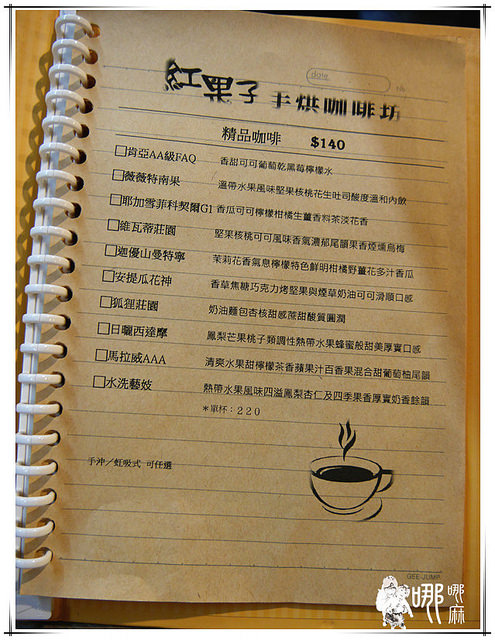 date
紅果子手烘咖啡坊
精品咖啡 $140
□肯亞AA級FAQ 香甜可可葡萄乾黑莓檸檬水
□薇薇特南果 溫帶水果風味堅果核桃花生吐司酸度溫和內斂
□耶加雪菲科契爾G1 香瓜可可檸檬柑橘生薑香料茶淡花香
□維瓦蒂莊園 堅果核桃可可風味香氣濃郁尾韻果香煙燻烏梅
□迦優山曼特寧 茉莉花香氣息檸檬特色鮮明柑橘野薑花多汁香瓜
□安提瓜花神 香草焦糖巧克力烤堅果與煙草奶油可可滑順口感
□狐狸莊園 奶油麵包杏核甜感蔗甜酸質圓潤
□日曬西達摩 鳳梨芒果桃子類調性熱帶水果蜂蜜般甜美厚實口感
□馬拉威AAA 清爽水果甜檸檬茶香蘋果汁百香果混合甜葡萄柚尾韻
□水洗藝妓 熱帶水果風味四溢鳳梨杏仁及四季果香厚實奶香餘韻
*單杯：220
手沖／虹吸式 可任選
GEE JUMP
哪哪麻